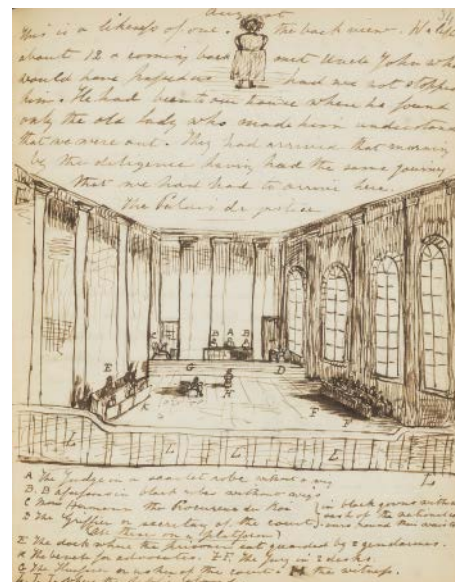 August
34
This is a likeness of one. the back view. We left
about 12 & coming back met Uncle John who
would have passed us had we not stopped
him. He had been to our house where he found
only the old lady who made him understand
that we were out. They had arrived that morning
by the deligence having had the same journey
that we had had to arrive here.
The Palais de justice
C B A B
E G D
K H
F
F
L L L L L
A The Judge in a scarlet robe without a wig
B. B assessors in black robes without wigs
C Mons Hermann the Procureur du Roi
D The Griffier or secretary of the court
in black gowns with
sash of the national
round their waists
(All these on a platform)
E The dock where the prisoner sat guarded by 2 gendarmes.
K The bench for advocates. F.F. The jury in 2 desks.
G The of the court. H The witness.